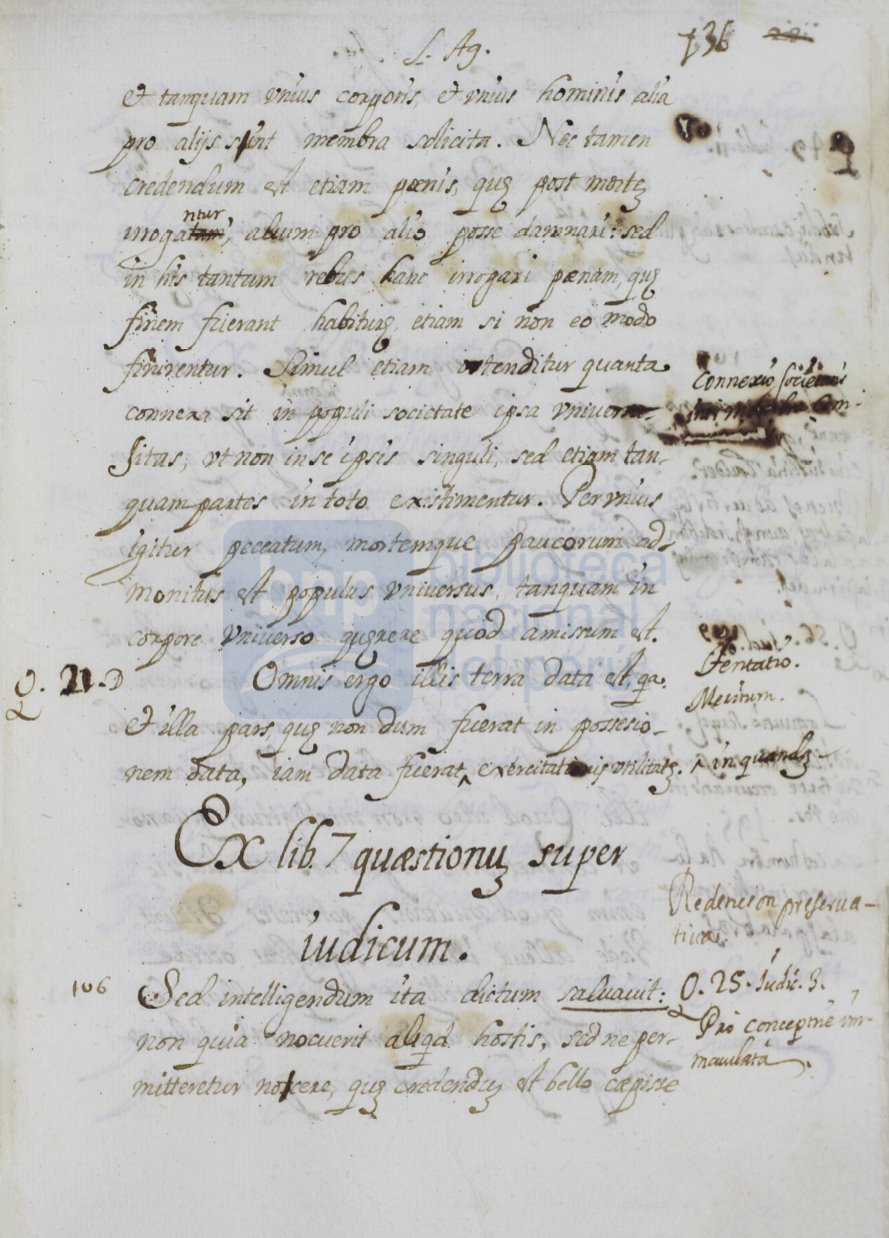 S. Ag.
136
et tanquam vnius corporis, et vnius hominis alia
pro alijs sint membra solicita. Nec tamen
credendum est etiam pœnis, quę post mortẽ
ntur
irrogatam, alium pro alio posse damnari: sed
in his tantum rebus hanc irrogari pœnam, quę
finem fuerant habiturę, etiam si non eo modo
finirentur. Simul etiam ostenditur quanta
connexa sit in populi societate ipsa vniuer-
sitas, vt non in se ipsis singuli, sed etiam tan-
quam partes in toto existimentur. Per vnius
igitur peccatum, mortemque paucorum ad-
monitus est populus vniuersus, tanquam in
corpore vniuerso quęrere quod amissum est.
Connexio societatis
Q. 21. D
Omnis ergo illis terra data est, qa.
et illa pars, quę non dum fuerat in possesio-
nem data, iam data fuerat, exercitationis vtilitatẽ.
Tentatio.
Meritum.
in quandã
Ex lib. 7 quæstionũ super
iudicum.
106
Sed intelligendum ita dictum saluauit:
non quia nocuerit aliqd. hostis, sed ne per-
mitteretur nocere, quę credendũ est bello cœpisse
Redencion preserua-
tiua.
Q. 25. Iudic. 3.
Pro conceptnẽ im-
maculata.
biblioteca
nacional
del perú
bnp